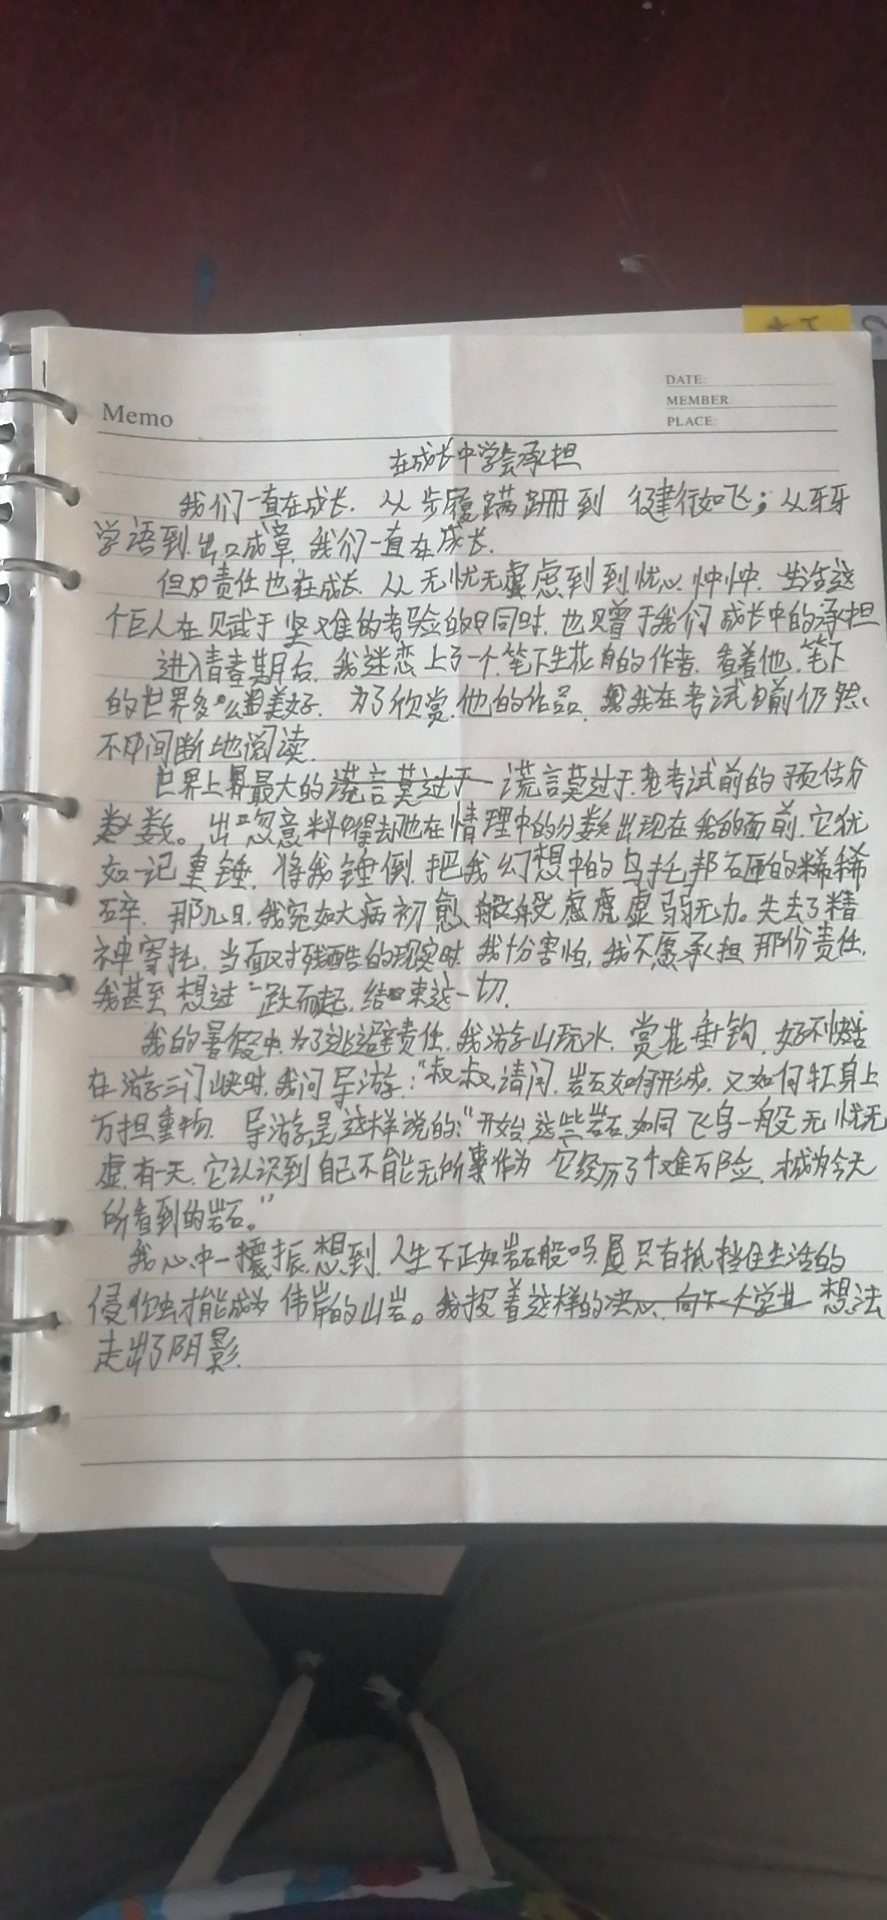 Memo
DATE:
MEMBER:
PLACE:
在成长中学会承担
我们一直在成长. 从步履蹒跚到 健行如飞；从牙牙
学语到出口成章, 我们一直在成长.
但 责任也在成长. 从无忧无虑到到忧心忡忡.
个巨人在赋于 坚难的考验的 同时. 也赠于我们成长中的承担
进入青春期后. 我迷恋上了一个笔下生花 的作者. 看着他笔下
的世界多么 美好. 为了欣赏他的作品, 我在考试 前仍然
不中间断地阅读.
世界上 最大的谎言莫过于 考试前的预估分
数。出 意料 得却也在情理中的分数出现在我的面前. 它犹
如一记重锤. 将我锤倒. 把我幻想中的乌托邦砸的稀稀
碎. 那几日, 我宛如大病初愈 般 虚弱无力。失去了精
神寄托. 当面对残酷的现实时 我十分害怕, 我不愿承担那份责任.
我甚至想过一跃而起, 结束这一切.
我的暑假中. 为了逃避责任. 我游山玩水. 赏花垂钓. 好不快活
在游三门峡时. 我问导游："叔叔, 请问, 岩石如何形成, 又如何扛身上
万担重物. 导游是这样说的:"开始, 这些岩石如同飞鸟一般无忧无
虚, 有一天. 它认识到自己不能无所 作为 它经历了千难万险, 才成为今天
所看到的岩石。"
我心中一 振, 想到, 人生不正如岩石般吗 只有抵挡住生活的
侵蚀才能成为 伟岸的山岩。我 着这样的 想法
走出了阴影.